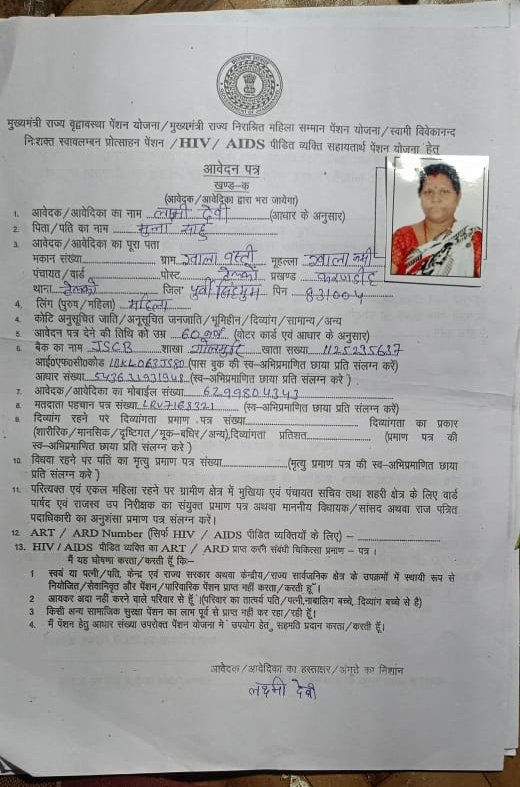 मुख्यमंत्री राज्य वृद्धावस्था पेंशन योजना/मुख्यमंत्री राज्य निराश्रित महिला सम्मान पेंशन योजना/स्वामी विवेकानन्द
निःशक्त स्वावलम्बन प्रोत्साहन पेंशन /HIV/ AIDS पीड़ित व्यक्ति सहायतार्थ पेंशन योजना हेतु
आवेदन पत्र
खण्ड-क
(आवेदक/आवेदिका द्वारा भरा जायेगा)
1. आवेदक/आवेदिका का नाम लक्ष्मी देवी (आधार के अनुसार)
2. पिता/पति का नाम मुन्ना साहु
3. आवेदक/आवेदिका का पूरा पता
मकान संख्या ग्राम ग्वाला बस्ती मुहल्ला ग्वाला बस्ती
पंचायत/वार्ड पोस्ट टेल्को प्रखण्ड करनडीह
थाना टेल्को जिला पूर्वी सिंहभुम पिन 831004
4. लिंग (पुरुष/महिला) महिला
4. कोटि अनुसूचित जाति/अनुसूचित जनजाति/भूमिहीन/दिव्यांग/सामान्य/अन्य
5. आवेदन पत्र देने की तिथि को उम्र 60 वर्ष (वोटर कार्ड एवं आधार के अनुसार)
6. बैंक का नाम JSCB शाखा गोलमुरी खाता संख्या 1125235637
आई0एफ0सी0कोड IBKL063JS80 (पास बुक की स्व-अभिप्रमाणित छाया प्रति संलग्न करें)
आधार संख्या 543631931948 (स्व-अभिप्रमाणित छाया प्रति संलग्न करें)
7. आवेदक/आवेदिका का मोबाईल संख्या 6299804343
8. मतदाता पहचान पत्र संख्या LRV7168321 (स्व-अभिप्रमाणित छाया प्रति संलग्न करें)
9. दिव्यांग रहने पर दिव्यांगता प्रमाण पत्र संख्या दिव्यांगता का प्रकार
(शारीरिक/मानसिक/दृष्टिगत/मूक-बधिर/अन्य),दिव्यांगता प्रतिशत (प्रमाण पत्र की
स्व-अभिप्रमाणित छाया प्रति संलग्न करें)
10. विधवा रहने पर पति का मृत्यु प्रमाण पत्र संख्या (मृत्यु प्रमाण पत्र की स्व-अभिप्रमाणित छाया
प्रति संलग्न करे )
11. परित्यक्त एवं एकल महिला रहने पर ग्रामीण क्षेत्र में मुखिया एवं पंचायत सचिव तथा शहरी क्षेत्र के लिए वार्ड
पार्षद एवं राजस्व उप निरीक्षक का संयुक्त प्रमाण पत्र अथवा माननीय विधायक/सांसद अथवा राज पत्रित
पदाधिकारी का अनुशंसा प्रमाण पत्र संलग्न करें।
12. ART / ARD Number (सिर्फ HIV / AIDS पीडित व्यक्तियों के लिए) –
13. HIV / AIDS पीडित व्यक्ति का ART / ARD प्राप्त करनी संबंधी चिकित्सा प्रमाण – पत्र।
मैं यह घोषणा करता/करती हूँ कि-
1 स्वयं या पत्नी/पति, केन्द्र एवं राज्य सरकार अथवा केन्द्रीय/राज्य सार्वजनिक क्षेत्र के उपक्रमों में स्थायी रूप से
नियोजित/सेवानिवृत और पेंशन/पारिवारिक पेंशन प्राप्त नहीं करता/करती हूँ।
2 आयकर अदा नहीं करने वाले परिवार से हूँ (परिवार का तात्पर्य पति/पत्नी,नाबालिग बच्चे, दिव्यांग बच्चे से है)
3 किसी अन्य सामाजिक सुरक्षा पेंशन का लाभ पूर्व से प्राप्त नहीं कर रहा/रही हूँ।
4. मैं पेंशन हेतु आधार संख्या उपरोक्त पेंशन योजना में उपयोग हेतु सहमति प्रदान करता/करती हूँ।
आवेदक/आवेदिका का हस्ताक्षर/अंगूठे का निशान
लक्ष्मी देवी